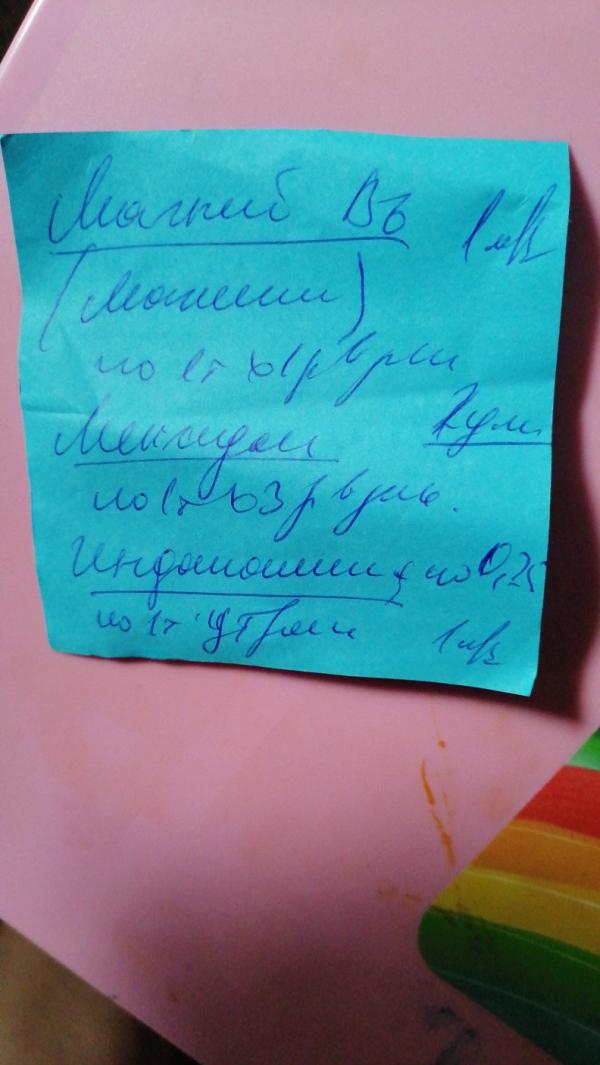 Магний В6 1 мес
(Магнелис)
по 1т х 1р в день
Мексидол
по 1т х 3 р в день.
Индапамид по 0,25
по 1т утром 1 мес